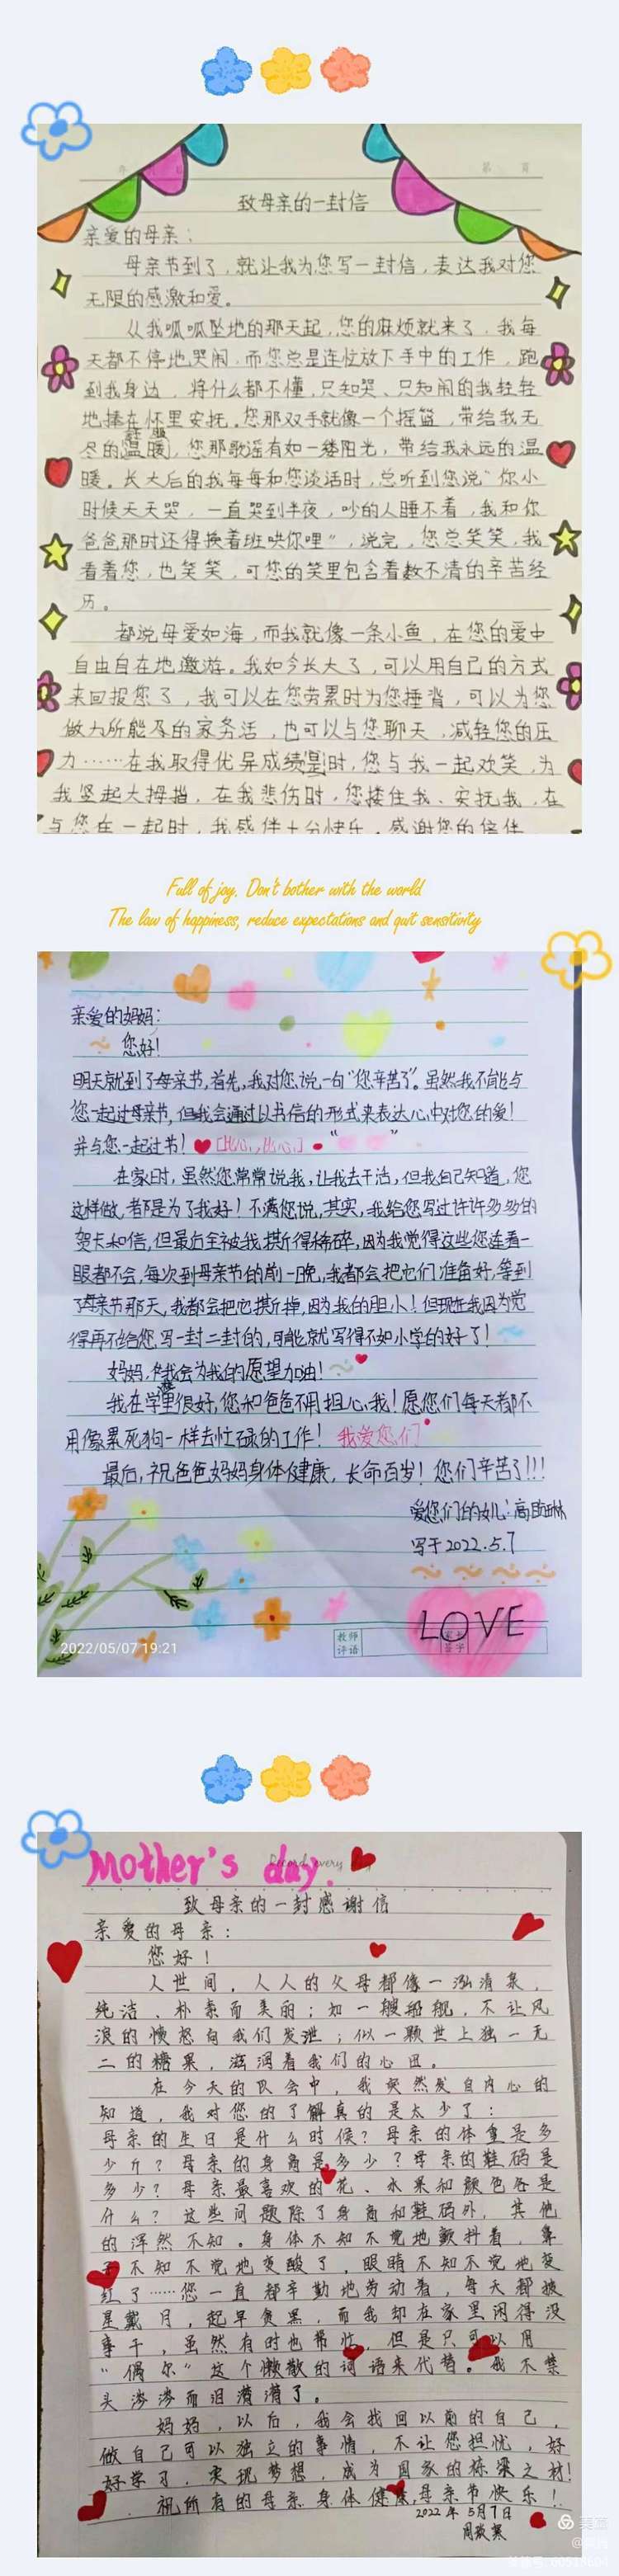 致母亲的一封信
亲爱的母亲：
母亲节到了，就让我为您写一封信，表达我对您
无限的感激和爱。
从我呱呱坠地的那天起，您的麻烦就来了，我每
天都不停地哭闹，而您总是连忙放下手中的工作，跑
到我身边，将什么都不懂，只知哭、只知闹的我轻轻
地搂在怀里安抚。您那双手就像一个摇篮，带给我无
尽的温暖，您那歌谣有如一缕阳光，带给我永远的温
暖。长大后的我每每和您谈话时，总听到您说"你小
时候天天哭，一直哭到半夜，吵的人睡不着，我和你
爸爸那时还得换着班哄你哩"，说完，您总笑笑，我
看着您，也笑笑，可您的笑里包含着数不清的辛苦经
历。
都说母爱如海，而我就像一条小鱼，在您的爱中
自由自在地遨游。我如今长大了，可以用自己的方式
来回报您了，我可以在您劳累时为您捶背，可以为您
做力所能及的家务活，也可以与您聊天，减轻您的压
力……在我取得优异成绩时，您与我一起欢笑，为
我竖起大拇指，在我悲伤时，您搂住我、安抚我，在
与您在一起时，我感伴十分快乐，感谢您的陪伴
Full of joy. Don't bother with the world
The law of happiness, reduce expectations and quit sensitivity
亲爱的妈妈：
您好！
明天就到了母亲节，首先，我对您说一句"您辛苦了"。虽然我不能与
您一起过母亲节，但我会通过以书信的形式来表达心中对您的爱！
并与您一起过节！[比心，比心]
在家时，虽然您常常说我，让我去干活，但我自己知道，您
这样做，都是为了我好！不满您说，其实，我给您写过许许多多的
贺卡和信，但最近全被我撕得稀碎，因为我觉得这些您连看一
眼都不会，每次到母亲节的前一晚，我都会把它们准备好，等到
了母亲节那天，我都会把它撕掉，因为我的胆小！但现在我因为觉
得再不给您写一封二封的，可能就写得不如小学的好了！
妈妈，我会为我的愿望加油！
我在学里很好，您和爸爸不用担心我！愿您们每天都不
用像累死狗一样去忙碌的工作！我爱您们
最后，祝爸爸妈妈身体健康，长命百岁！您们辛苦了!!!
爱您们的女儿：高
写于2022.5.7
LOVE
教师
评语
签字
2022/05/07 19:21
Mother's day.
Record every
致母亲的一封感谢信
亲爱的母亲：
您好！
人世间，人人的父母都像一泓清泉，
纯洁、朴素而美丽；如一艘船舰，不让风
浪的愤怒向我们发泄；似一颗世上独一无
二的糖果，滋润着我们的心田。
在今天的队会中，我突然发自内心的
知道，我对您的了解真的是太少了：
母亲的生日是什么时候？母亲的体重是多
少斤？母亲的身高是多少？母亲的鞋码是
多少？母亲最喜欢的花、水果和颜色各是
什么？这些问题除了身高和鞋码外，其他
的浑然不知。身体不知不觉地颤抖着，鼻
子不知不觉地变酸了，眼睛不知不觉地变
红了……您一直都辛勤地劳动着，每天都披
星戴月，起早贪黑，而我却在家里闲得没
事干，虽然有时也帮忙，但是只可以用
"偶尔"这个懒散的词语来代替。我不禁
头涔涔而泪潸潸了。
妈妈，以后，我会找回以前的自己，
做自己可以独立的事情，不让您担忧，好
好学习，实现梦想，成为国家的栋梁之材！
祝所有的母亲身体健康，母亲节快乐！
2022年5月7日
美篇
美篇号:60519604